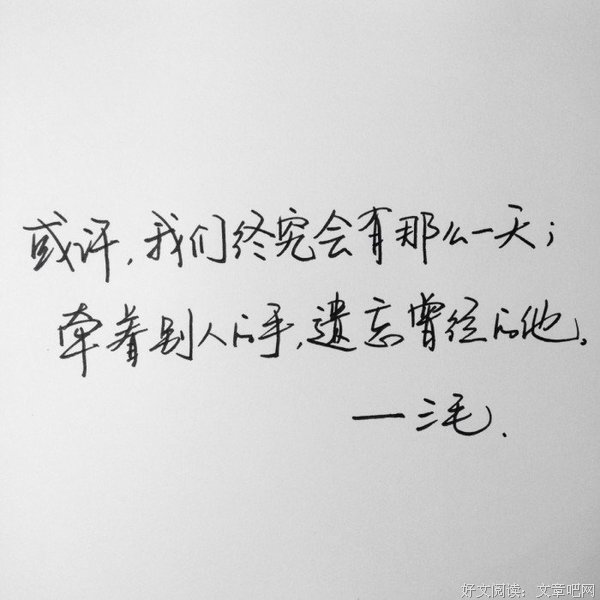 或许，我们终究会有那么一天；
牵着别人的手，遗忘曾经的他。
—三毛.
好文阅读：文章吧网